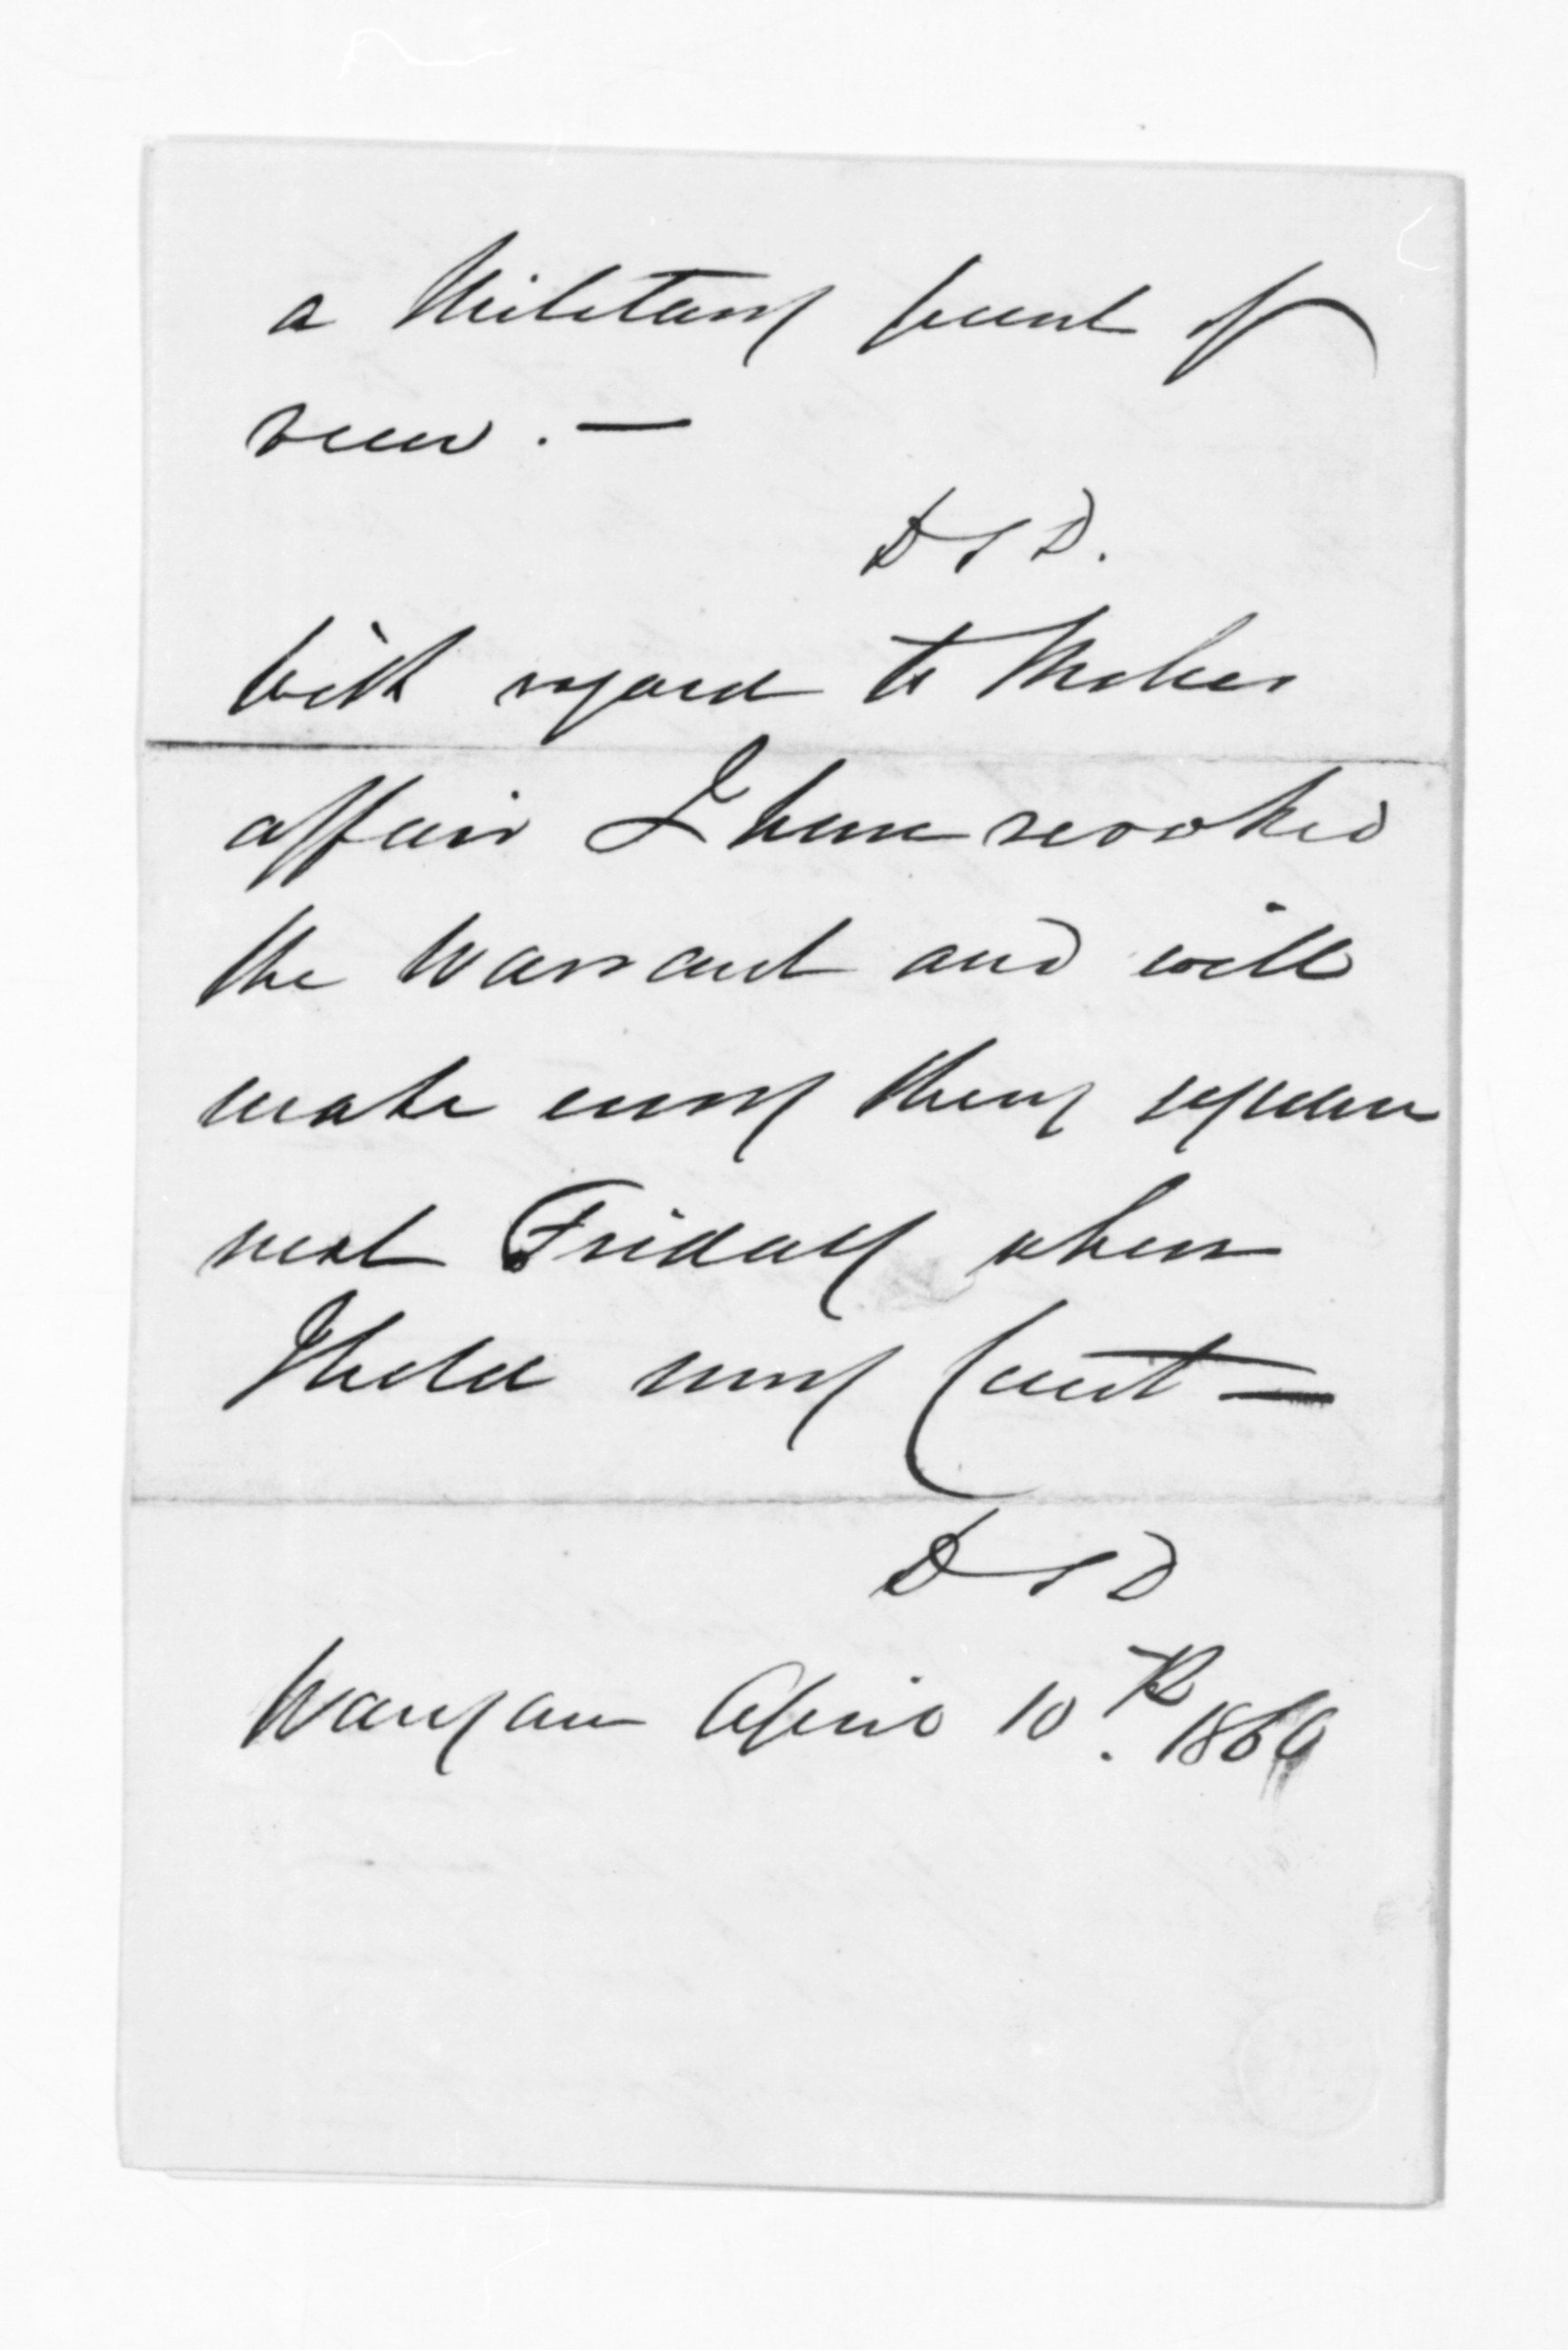 a Military point of
view. —
D S D.
With regard to Mokes
affair I have revoked
the Warrant and will
make every thing square
next Friday when
I hold my Court —
D S D
Wanganui April 10th. 1869